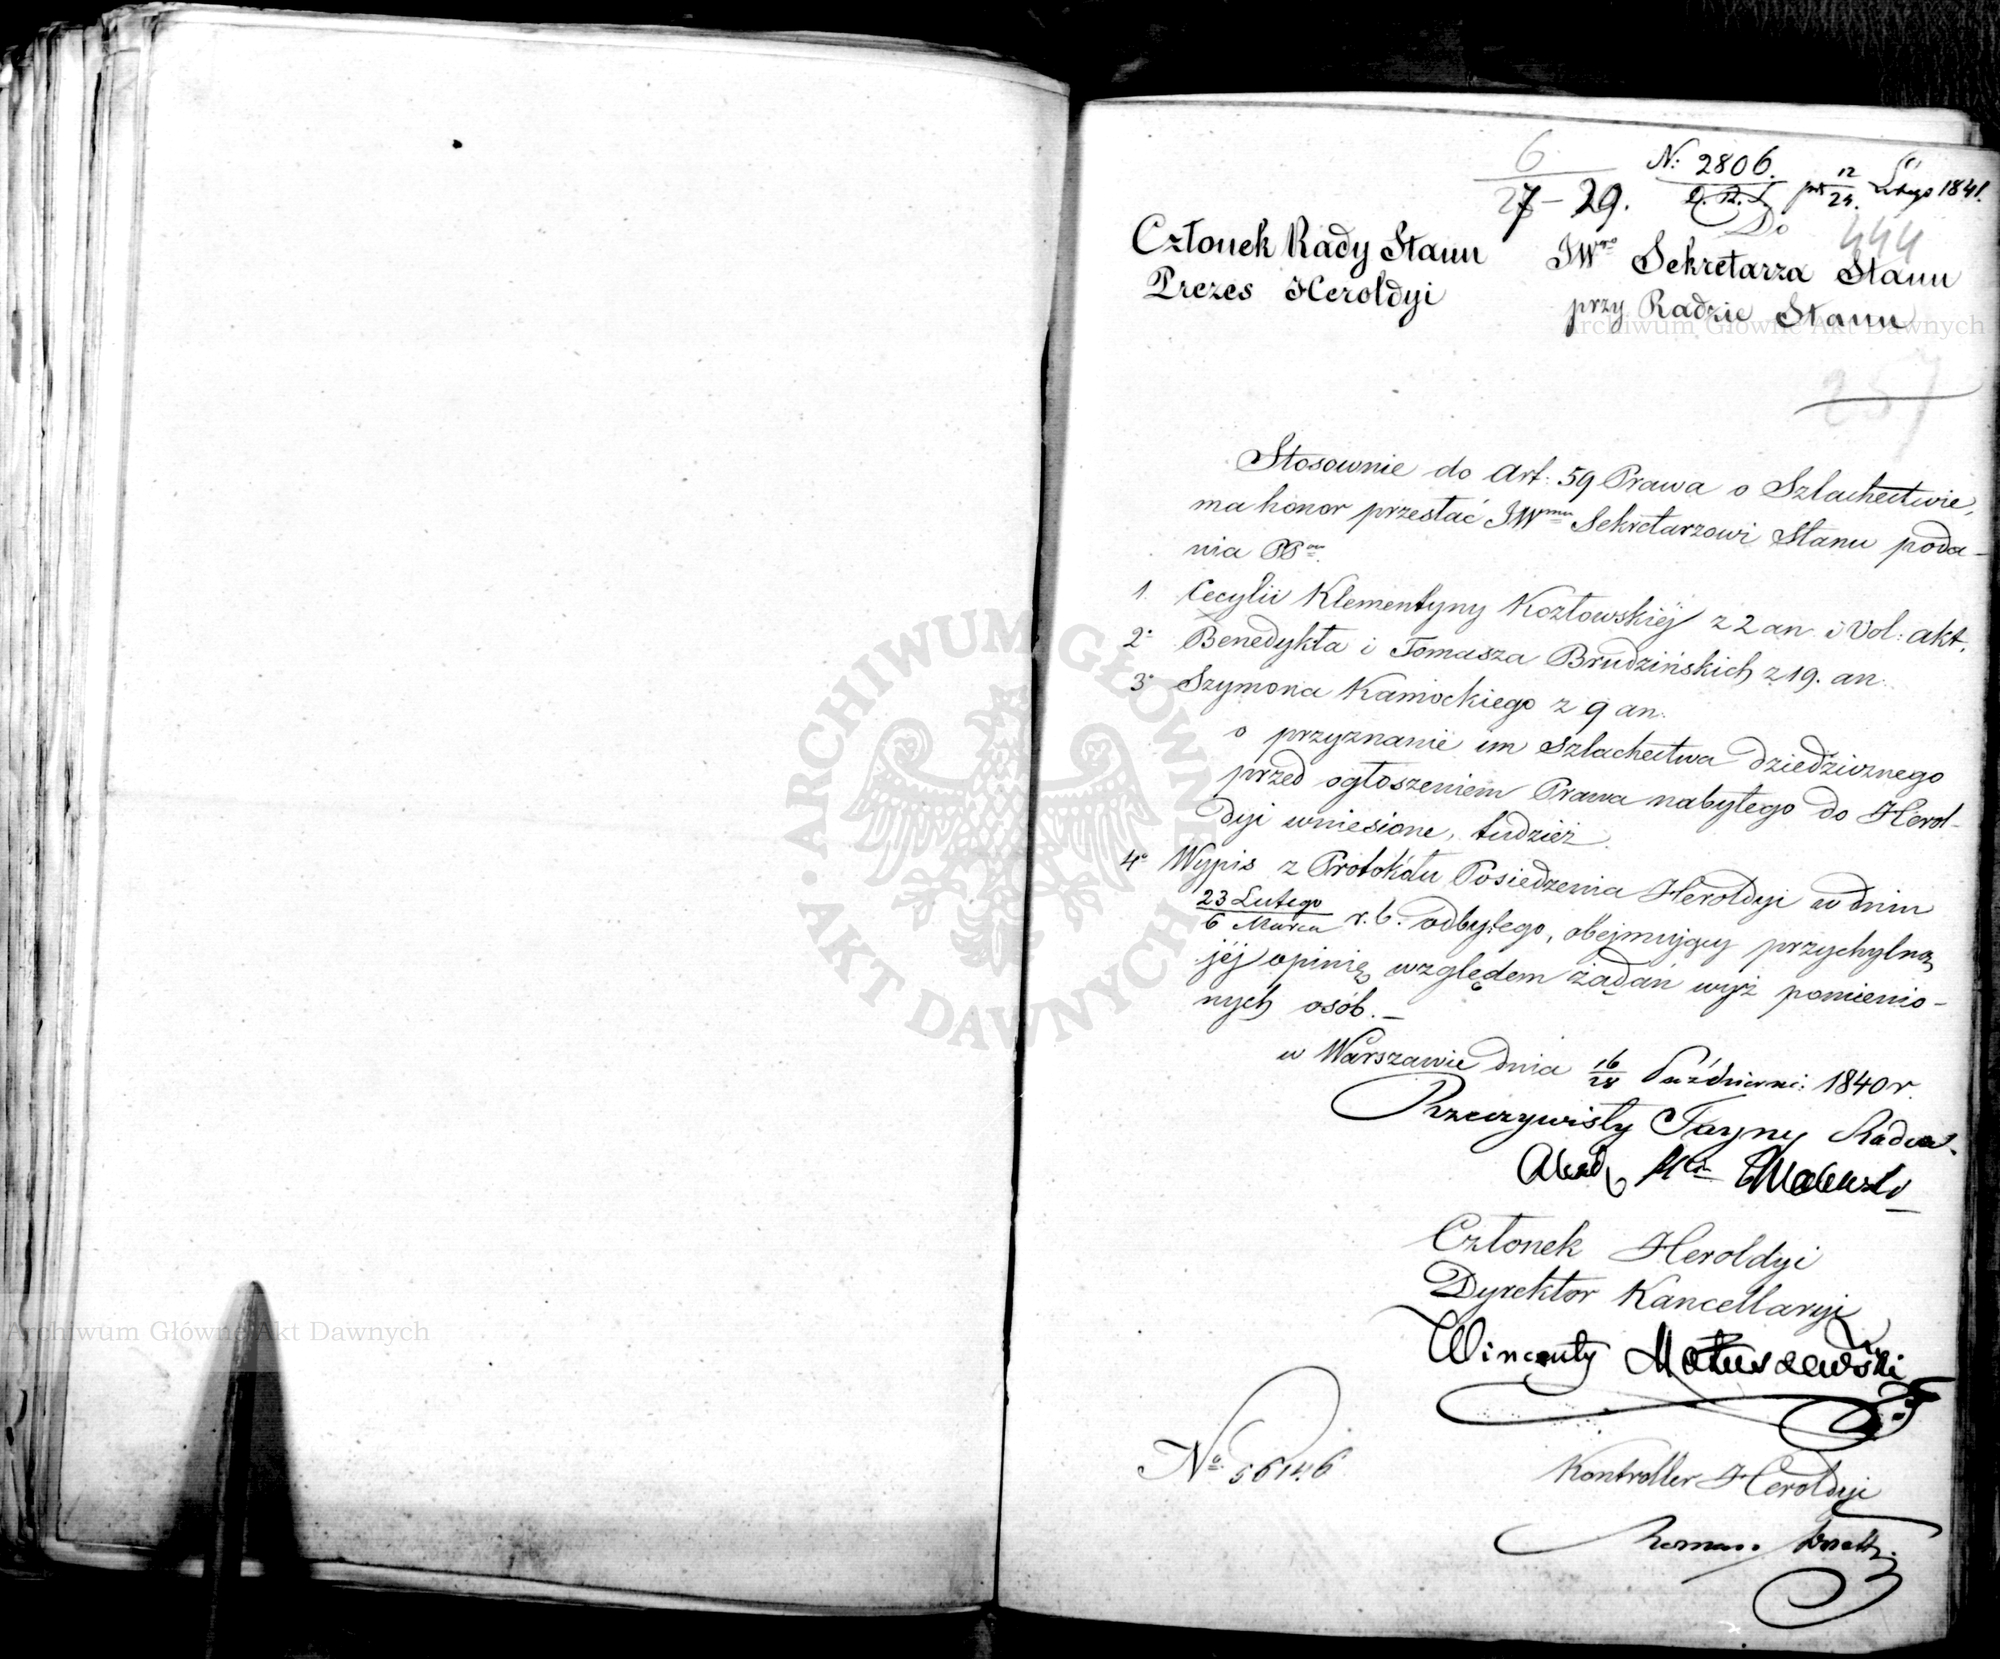 6
27-29.
N: 2806.
pr 12/24. Lutego 1841.
Do
444
Członek Rady Stanu
Prezes Heroldyi
JWgo Sekretarza Stanu
przy Radzie Stanu
257
Stosownie do Art: 59 Prawa o Szlachectwie,
ma honor przesłać JWmu Sekretarzowi Stanu poda-
nia PP
1. Cecylii Klementyny Kozłowskiéj z 2 an. i Vol: akt.
2° Benedykta i Tomasza Brudzińskich z 19. an.
3° Szymona Kamockiego z 9 an.
o przyznanie im Szlachectwa dziedzicznego
przed ogłoszeniem Prawa nabytego do Herol-
dyi wniesione, tudzież
4° Wypis z Protokółu Posiedzenia Heroldyi w dniu
23 Lutego/6 Marca r. b. odbytego, obejmujący przychylną
jéj opinię względem żądań wyż pomienio-
nych osób. -
w Warszawie dnia 16/28 Październi: 1840 r.
Rzeczywisty Tayny Radca
Członek Heroldyi
Dyrektor Kancellaryi
Wincenty Matuszewski
No 56146
Kontroller Heroldyi
Archiwum Główne Akt Dawnych
Archiwum Główne Akt Dawnych
ARCHIWUM GŁÓWNE · AKT DAWNYCH ·